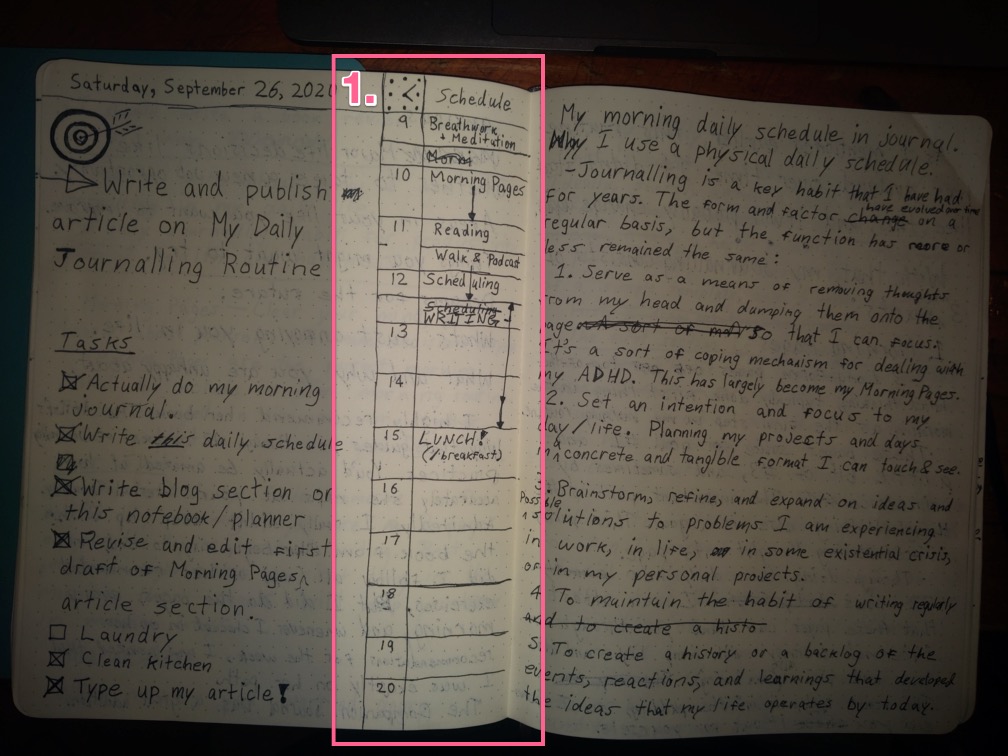 Saturday, September 26, 2020
Write and publish
article on My Daily
Journalling Routine
Tasks
Actually do my morning
journal.
Write this daily schedule
Write blog section on
this notebook/planner
Revise and edit first
draft of Morning Pages
article section.
Laundry
Clean kitchen
Type up my article!
1.
Schedule
9 Breathwork
+ Meditution
Morni
10 Morning Pages
11 Reading
Walk & Podcast
12 Scheduling
Scheduling
WRITING
13
14
15 LUNCH!
(/breakfast)
16
17
18
19
20
My morning daily schedule in journal.
Why I use a physical daily schedule.
-Journalling is a key habit that I have had
for years. The form and factor change have evolved over time on a
regular basis, but the function has more or
less remained the same:
1. Serve as a means of removing thoughts
from my head and dumping them onto the
page. A sort of so that I can focus.
It's a sort of coping mechanism for dealing with
my ADHD. This has largely become my Morning Pages.
2. Set an intention and focus to my
day/life. Planning my projects and days
in concrete and tangible format I can touch & see.
3. Brainstorm, refine, and expand on ideas and
possible solutions to problems I am experiencing
in work, in life, in some existential crisis,
or in my personal projects.
4. To maintain the habit of writing regularly
and to create a histo
5. To create a history or a backlog of the
events, reactions, and learnings that developed
the ideas that my life operates by today.